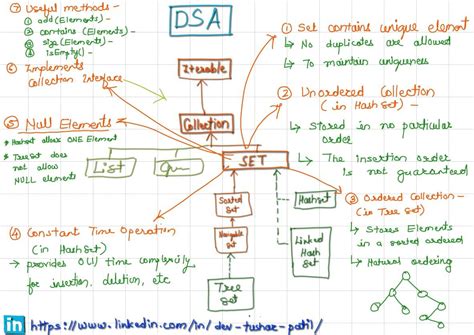 DSA
⑦ Useful methods -
① add(Elements)
② contains(Elements)
③ size(Elements)
④ isEmpty() -
⑥ Implements
Collection Interface
⑤ Null Elements
* Hashset allow ONE Element
* TreeSet does
not allow
NULL elements
④ Constant Time Operation
(in HashSet)
→ provides O(1) time complexity
for insertion, deletion, etc
Iterable
Collection
List
SET
Sorted
Set
Navigable
Set
Tree
Set
Hashset
Linked
Hash
Set
① Set contains unique element
↳ No duplicates are allowed
↳ To maintain uniqueness
② Unordered Collection
(in Hash Set) -
↳ Stored in no particular
order
↳ The insertion order
is not guaranteed
③ Ordered Collection -
(in Tree Set)
↳ Stores Elements
in a sorted ordered
↳ Natural ordering
in https://www.linkedin.com/in/dev-tushar-patil/